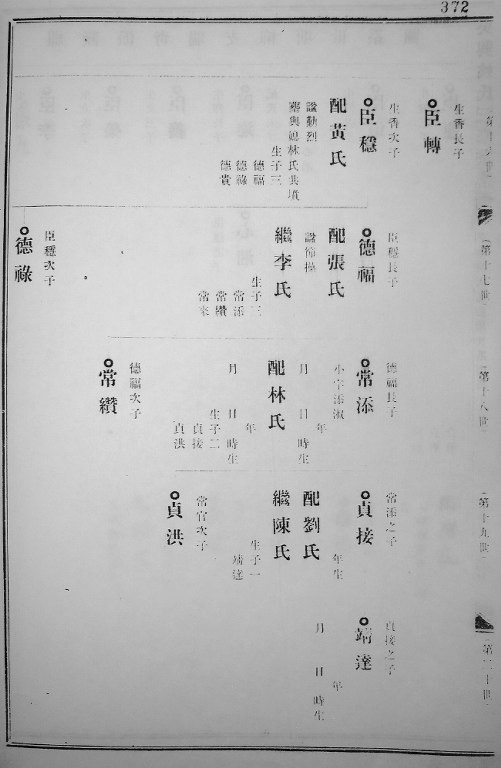 372
第十六世
生香長子
臣轉
生香次子
臣穩
配黃氏
諡勤烈
塟與媽林氏共墳
生子三
德福
德祿
德貴
第十七世
臣穩長子
德福
配張氏
諡節操
繼李氏
生子三
常添
常纘
常來
臣穩次子
德祿
第十八世
德福長子
常添
小字添淑
年
月 日 時生
配林氏
年
月 日 時生
生子二
貞接
貞洪
德福次子
常纘
第十九世
常添之子
貞接
年生
配劉氏
繼陳氏
生子一
靖達
常官次子
貞洪
第二十世
貞接之子
靖達
年
月 日 時生